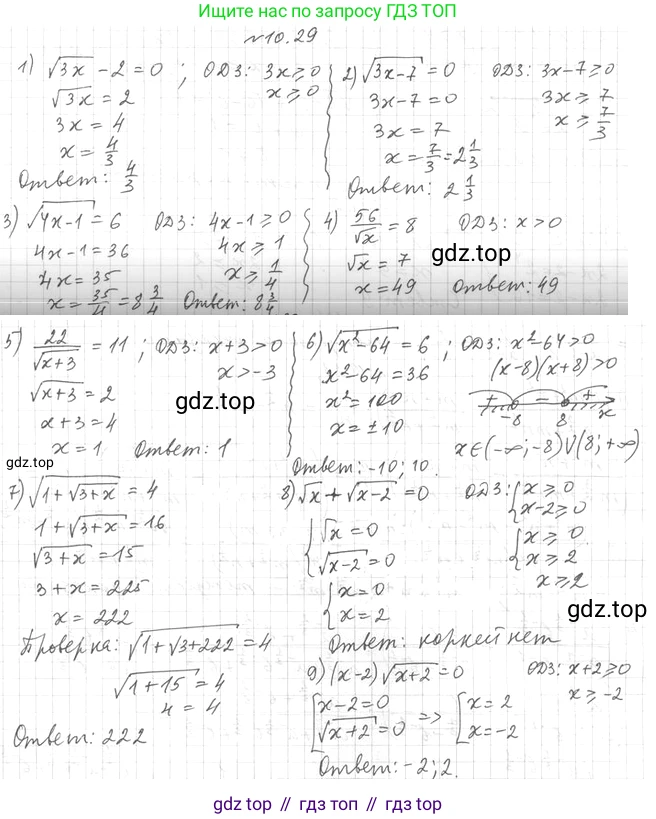 Ищите нас по запросу ГДЗ ТОП
№10.29
1) √3x - 2 = 0 ; ОДЗ: 3x ⩾ 0
√3x = 2
x ⩾ 0
3x = 4
x = 4/3
Ответ: 4/3
2) √3x-7 = 0 ОДЗ: 3x-7 ⩾ 0
3x-7 = 0
3x ⩾ 7
3x = 7
x ⩾ 7/3
x = 7/3 = 2 1/3
Ответ: 2 1/3
3) √4x-1 = 6 ОДЗ: 4x-1 ⩾ 0
4x-1 = 36
4x ⩾ 1
4x = 35
x ⩾ 1/4
x = 35/4 = 8 3/4 Ответ: 8 3/4
4) 56/√x = 8 ОДЗ: x > 0
√x = 7
x = 49 Ответ: 49
gdz.top
5) 22/√x+3 = 11 ; ОДЗ: x+3 > 0
x > -3
√x+3 = 2
x+3 = 4
x = 1 Ответ: 1
gdz.top
6) √x²-64 = 6 ; ОДЗ: x²-64 > 0
x²-64 = 36
(x-8)(x+8) > 0
x² = 100
+ - +
-8 8 x
x = ±10
x∈(-∞;-8)∪(8;+∞)
Ответ: -10; 10.
gdz.top
7) √1+√3+x = 4
1+√3+x = 16
√3+x = 15
3+x = 225
x = 222
Проверка: √1+√3+222 = 4
√1+15 = 4
4 = 4
Ответ: 222
8) √x + √x-2 = 0 ОДЗ: { x ⩾ 0
x-2 ⩾ 0
{ √x = 0
√x-2 = 0
{ x ⩾ 0
x ⩾ 2
x ⩾ 2
{ x = 0
x = 2
Ответ: корней нет
gdz.top
9) (x-2)√x+2 = 0 ОДЗ: x+2 ⩾ 0
x ⩾ -2
[ x-2 = 0
√x+2 = 0 => [ x = 2
x = -2
Ответ: -2; 2.
gdz.top // гдз топ // gdz.top